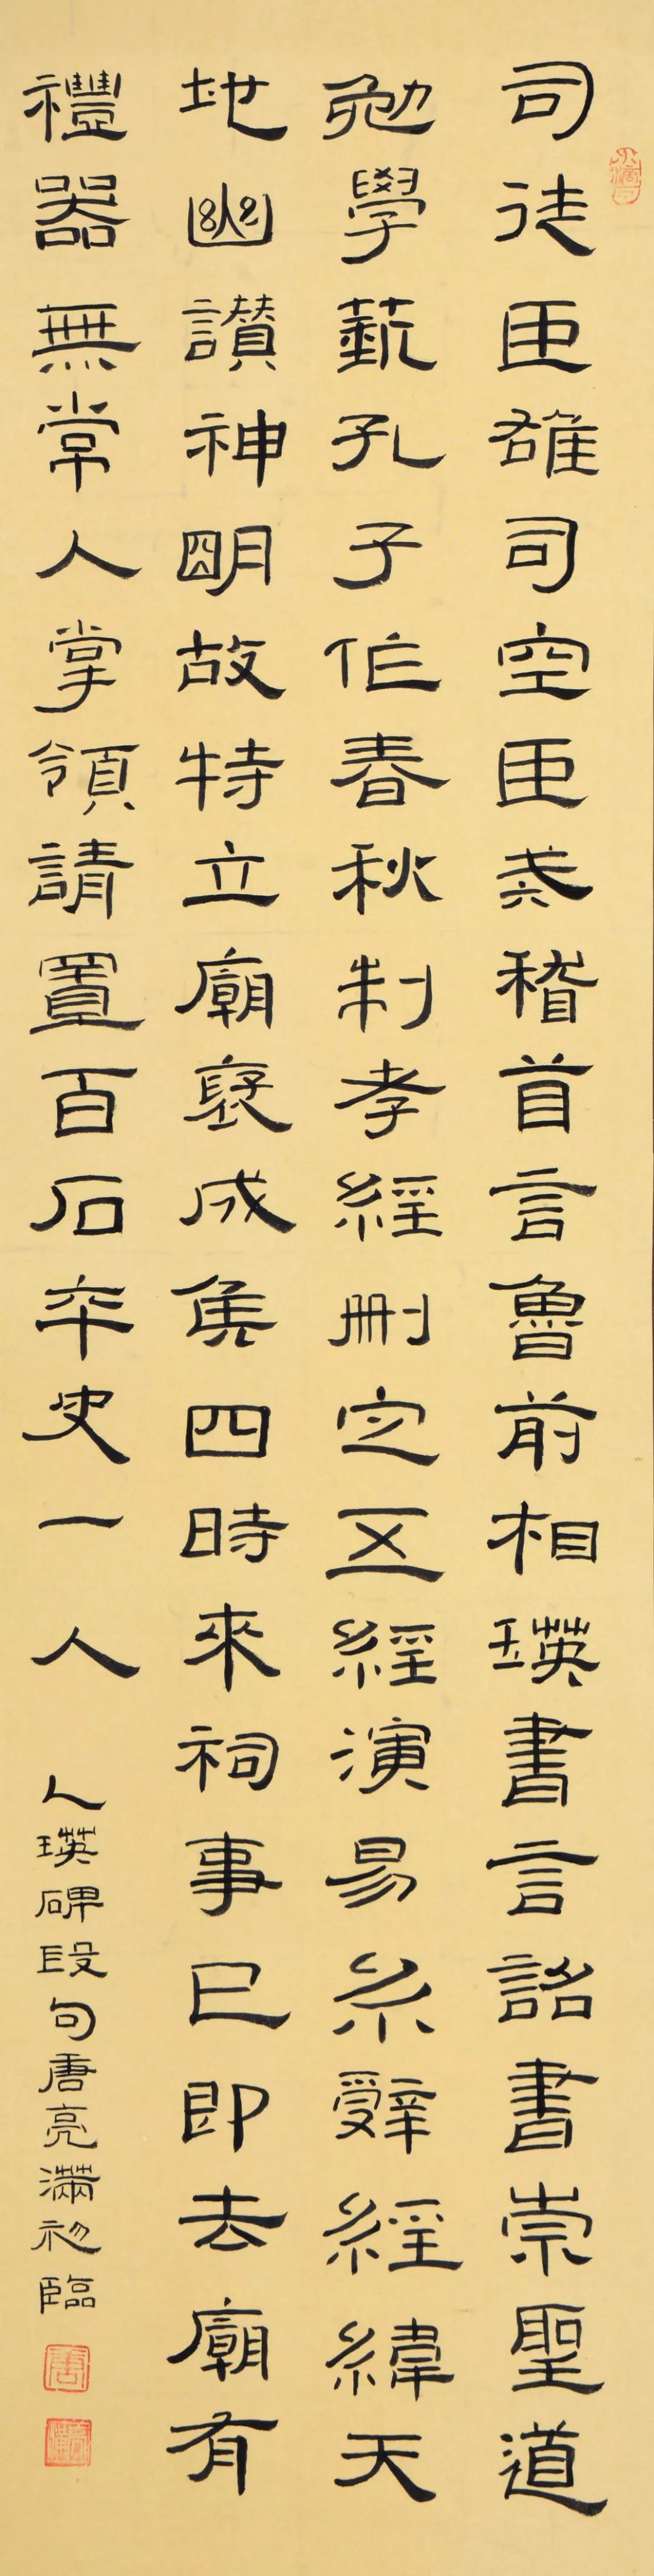 司徒臣雄司空臣戒稽首言魯前相瑛書言詔書崇聖道
勉學蓺孔子作春秋制孝經刪定五經演易系辭經緯天
地幽讃神明故特立廟褒成侯四時來祠事已即去廟有
禮器無常人掌領請置百石卒史一人
乙瑛碑段句唐亮滿初臨